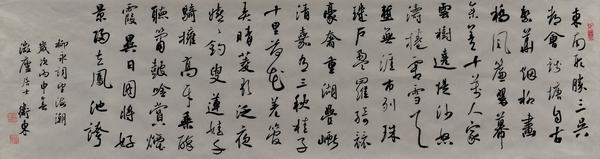 東南形勝三吳
都會錢塘自古
繁華烟柳畫
橋風簾翠幕
參差十萬人家
雲樹遶堤沙怒
濤捲霜雪天
塹無涯市列珠
璣戶盈羅綺競
豪奢重湖疊巘
清嘉有三秋桂子
十里荷花羌管
弄晴菱歌泛夜
嬉嬉釣叟蓮娃千
騎擁高牙乘醉
聽簫鼓吟賞煙
霞異日圖將好
景歸去鳳池誇
柳永詞望海潮
歲次丙申春
廬居士衛東